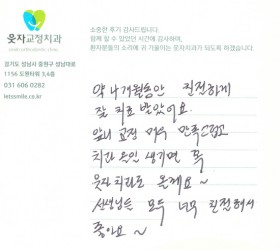 웃자교정치과
소중한 후기 감사드립니다.
함께 할 수 있었던 시간에 감사하며,
환자분들의 소리에 귀 기울이는 웃자치과가 되도록 하겠습니다.
경기도 성남시 중원구 성남대로
1156 도원타워 3,4층
031 606 0282
letssmile.co.kr
약 4개월동안 친절하게
잘 치료 받았어요.
앞니 교정 매우 만족스럽고
치과 올일 생기면 꼭
웃자치과로 올께요~
선생님들 모두 너무 친절해서
좋아요~